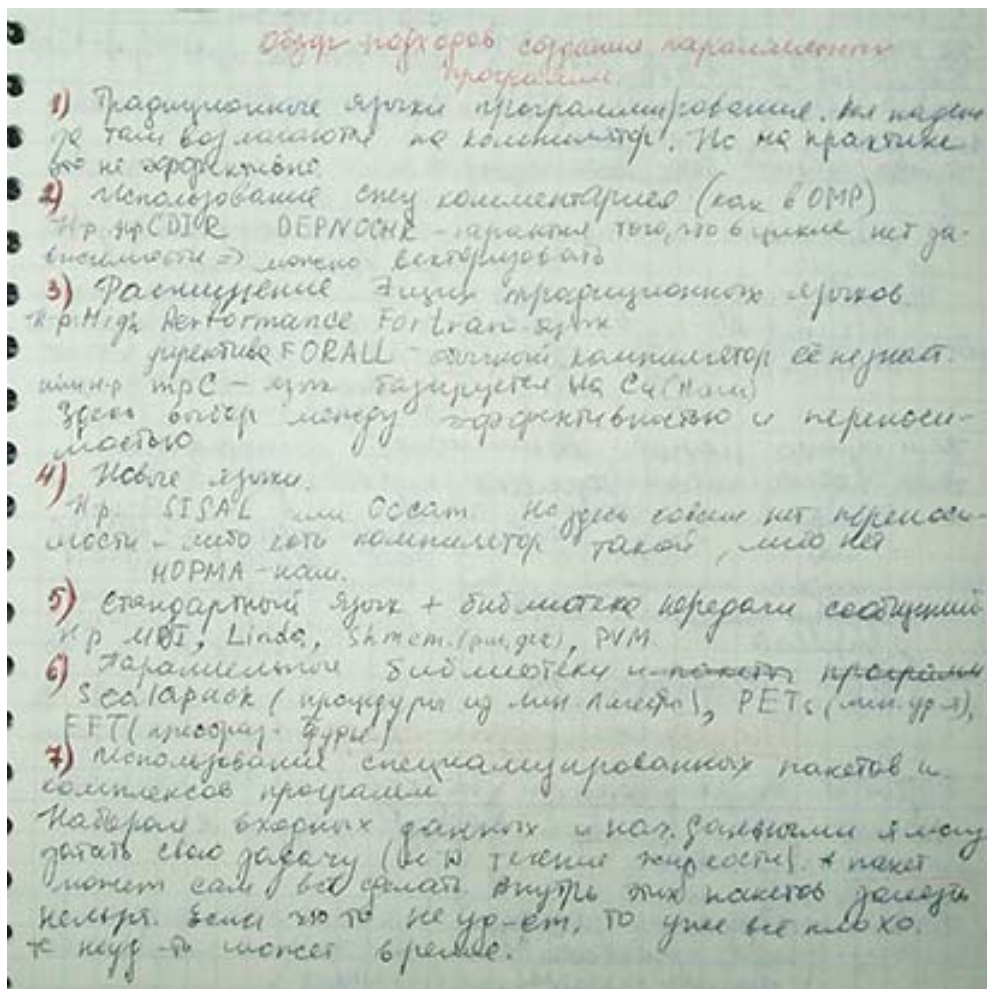 Обзор подходов создания параллельных
программ.
1) Традиционные языки программирования. Вся надеж
да там возлагаются на компилятор. Но на практике
это не эффективно
2) Использование спец комментариев (как в OMP)
Нр. CDIR DEPNOCHK - гарантия того, что в цикле нет за-
висимости => можно векторизовать
3) Расширение традиционных языков.
Н.р. High Performance Fortran язык
директива FORALL - обычный компилятор её не знает
или н-р mpC - язык базируется на Си (наш)
Здесь выбор между эффективностью и переноси-
мостью
4) Новые языки.
Нр. SISAL или Occam. Но здесь совсем нет переноси-
мости - либо есть компилятор такой, либо нет
НОРМА - наш.
5) Стандартный язык + библиотека передачи сообщений
Нр MPI, Linda, Shmem, PVM.
6) Параллельные библиотеки и пакеты программ
Scalapack (процедуры из лин. алгебры), PETs (лин. ур-я),
FFT (преобраз. Фурье)
7) Использование специализированных пакетов и
комплексов программ
Набором входных данных и нач. данными я могу
задать свою задачу (течение жидкости) а пакет
может сам всё сделать. Внутрь этих пакетов залезть
нельзя. Если что то не уд-ет, то уже всё плохо.
может время.